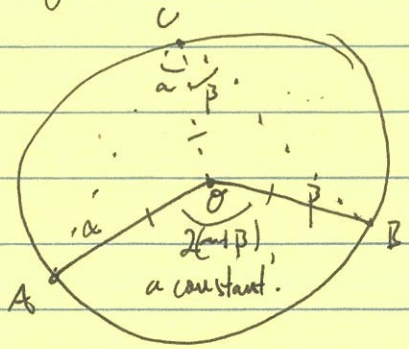 C
α β
O
α β
2(α+β),
A B
a constant.